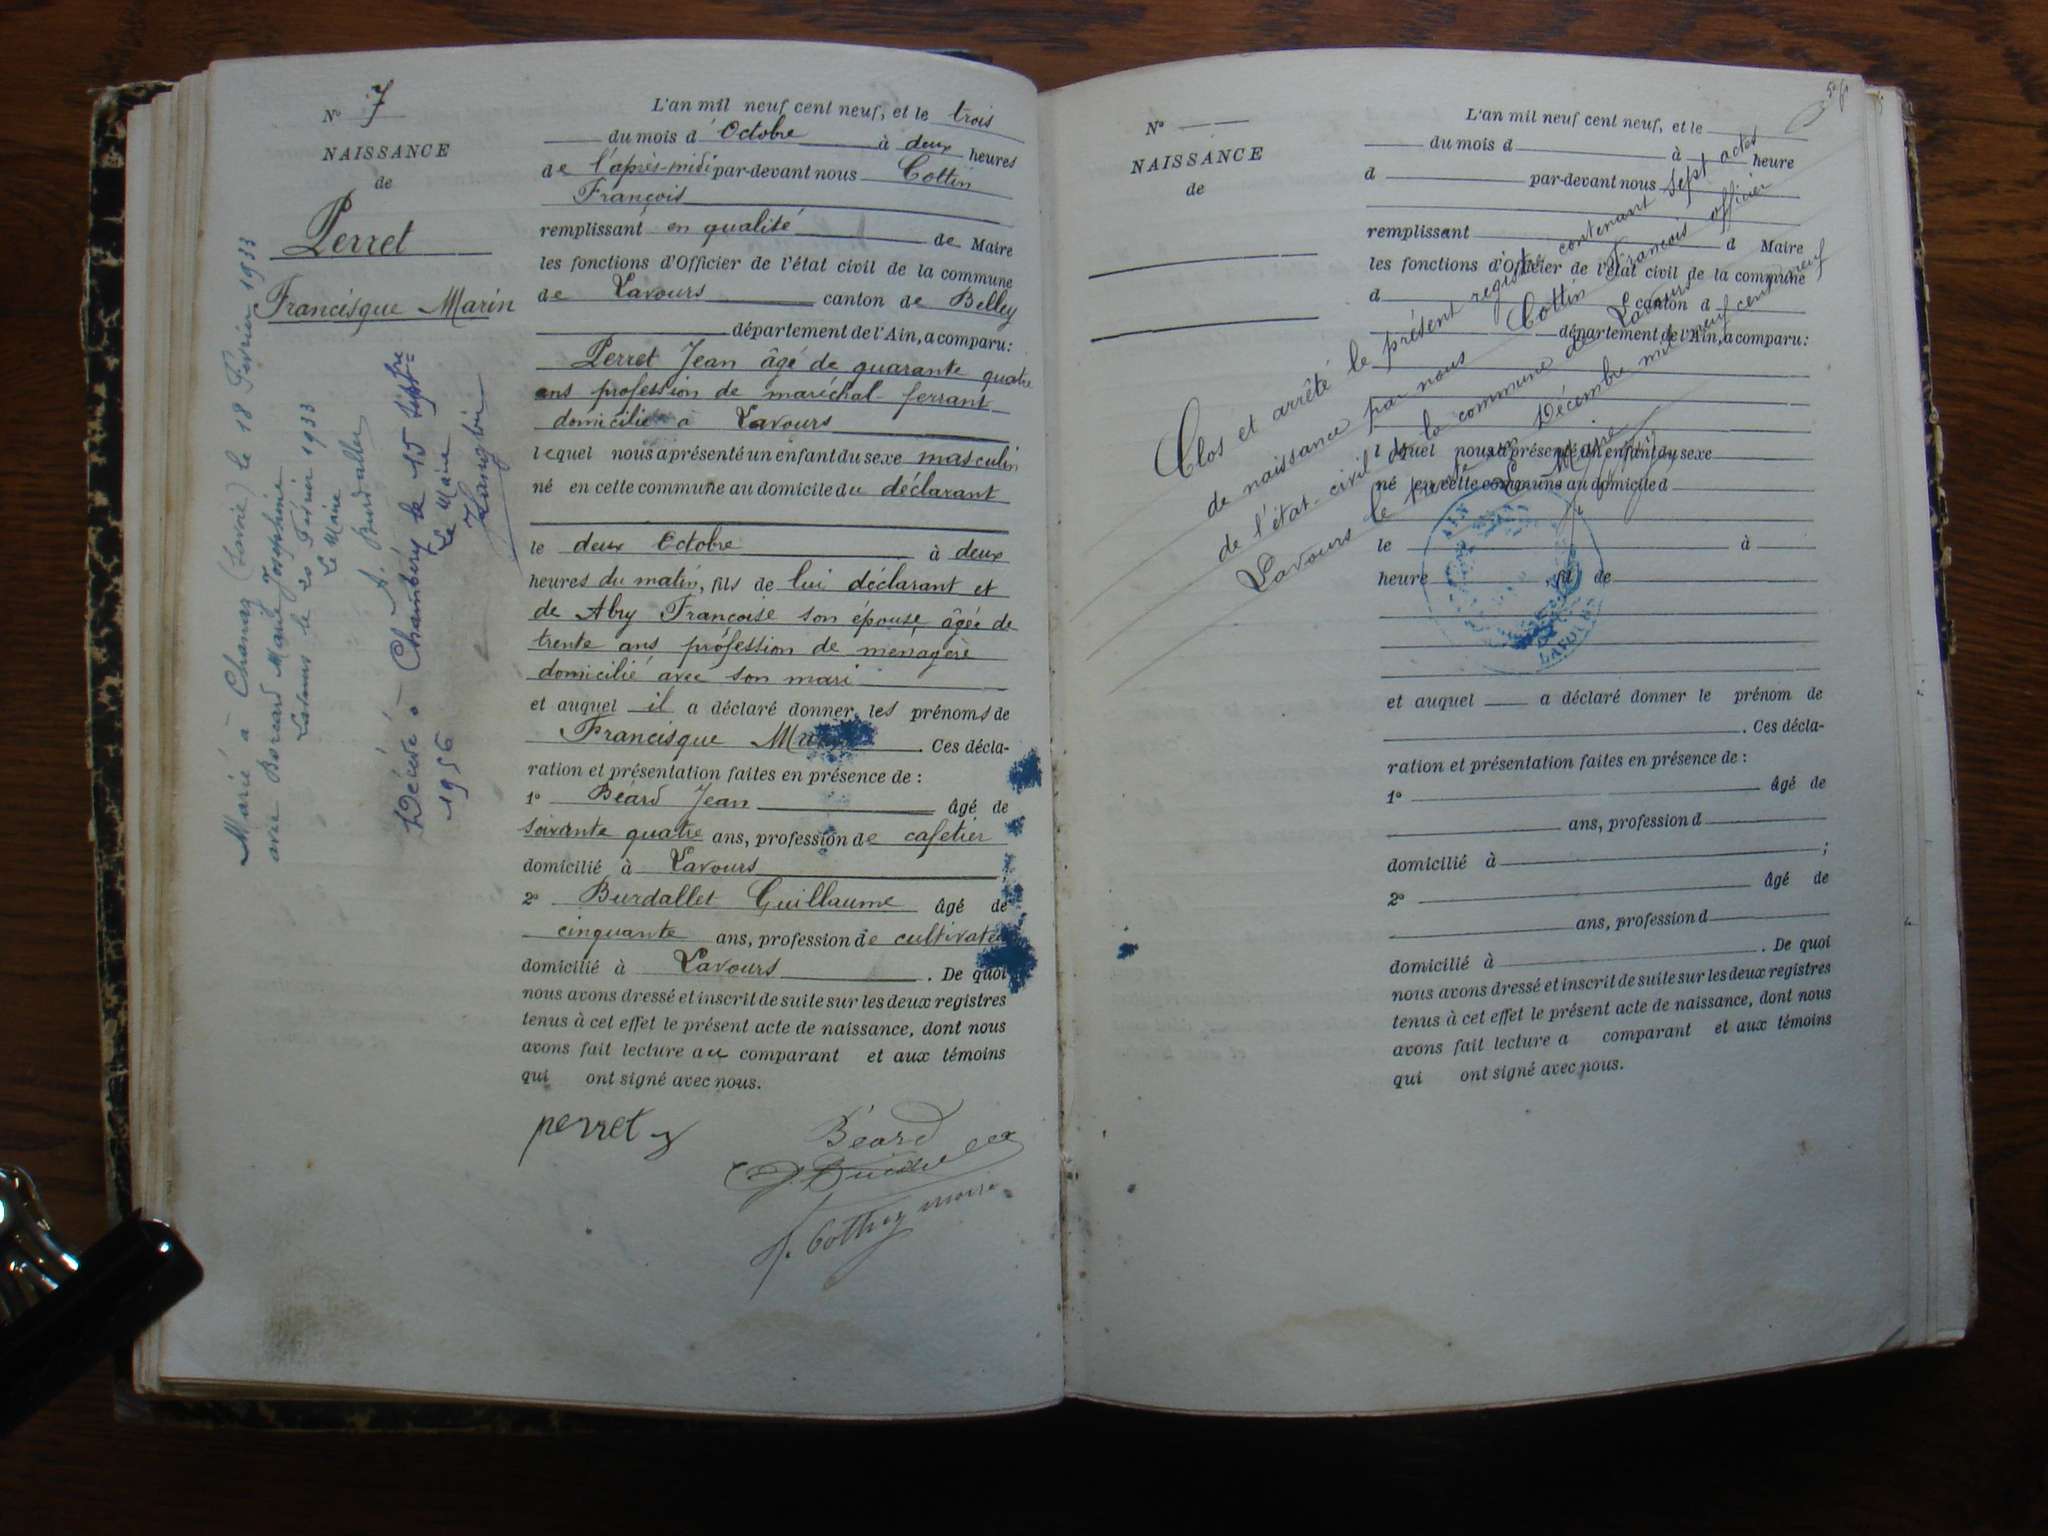 N° 7
NAISSANCE
de
Perret
Francisque Marin
Marié à Chanaz (Savoie) le 18 Février 1933
avec Borcard Marie Joséphine
Lavours le 20 Février 1933
Le Maire
A. Burdallet
Décédé à Chambéry le 15 Septbre
1956
Le Maire
L'an mil neuf cent neuf, et le trois
du mois d'Octobre à deux heures
de l'après-midi par-devant nous Cottin
François
remplissant en qualité de Maire
les fonctions d'Officier de l'état civil de la commune
de Lavours canton de Belley
département de l'Ain, a comparu :
Perret Jean âgé de quarante quatre
ans profession de maréchal-ferrant
domicilié à Lavours
lequel nous a présenté un enfant du sexe masculin
né en cette commune au domicile du déclarant
le deux Octobre à deux
heures du matin, fils de lui déclarant et
de Abry Françoise son épouse âgée de
trente ans profession de ménagère
domicilié avec son mari
et auquel il a déclaré donner les prénoms de
Francisque . Ces décla-
ration et présentation faites en présence de :
1° Béard Jean âgé de
soixante quatre ans, profession de cafetier
domicilié à Lavours ;
2° Burdallet Guillaume âgé de
cinquante ans, profession de cultivateur
domicilié à Lavours . De quoi
nous avons dressé et inscrit de suite sur les deux registres
tenus à cet effet le présent acte de naissance, dont nous
avons fait lecture au comparant et aux témoins
qui ont signé avec nous.
perret
Béard
maire
N°
NAISSANCE
de
L'an mil neuf cent neuf, et le
du mois d à heure
d par-devant nous
remplissant d Maire
les fonctions d'Officier de l'état civil de la commune
d canton d
département de l'Ain, a comparu :
l quel nous a présenté un enfant du sexe
né en cette commune au domicile d
le à
heure fil de
et auquel a déclaré donner le prénom de
. Ces décla-
ration et présentation faites en présence de :
1° âgé de
ans, profession d
domicilié à ;
2° âgé de
ans, profession d
domicilié à . De quoi
nous avons dressé et inscrit de suite sur les deux registres
tenus à cet effet le présent acte de naissance, dont nous
avons fait lecture a comparant et aux témoins
qui ont signé avec nous.
Clos et arrêté le présent registre contenant sept actes
de naissance par nous Cottin François officier
de l'état-civil de la commune de Lavours
Lavours le trente un Décembre mil neuf cent neuf
Le Maire
AIN